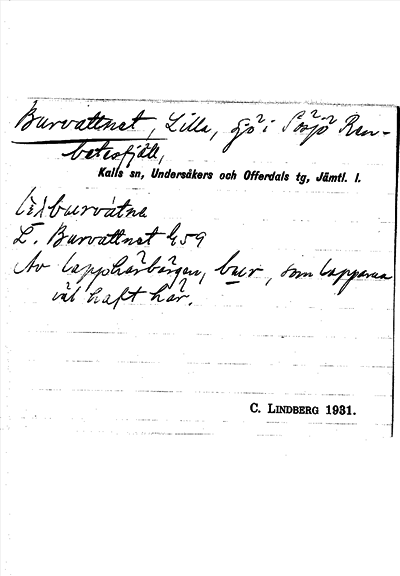 Burvattnet, Lilla, sjö i Sösjö Ren-
betesfjäll,
Kalls sn, Undersåkers och Offerdals tg, Jämtl. l.
burvatne
L. Burvattnet G59
Av lapphärbärgen, bur, som lapparna
väl haft här.
C. LINDBERG 1931.